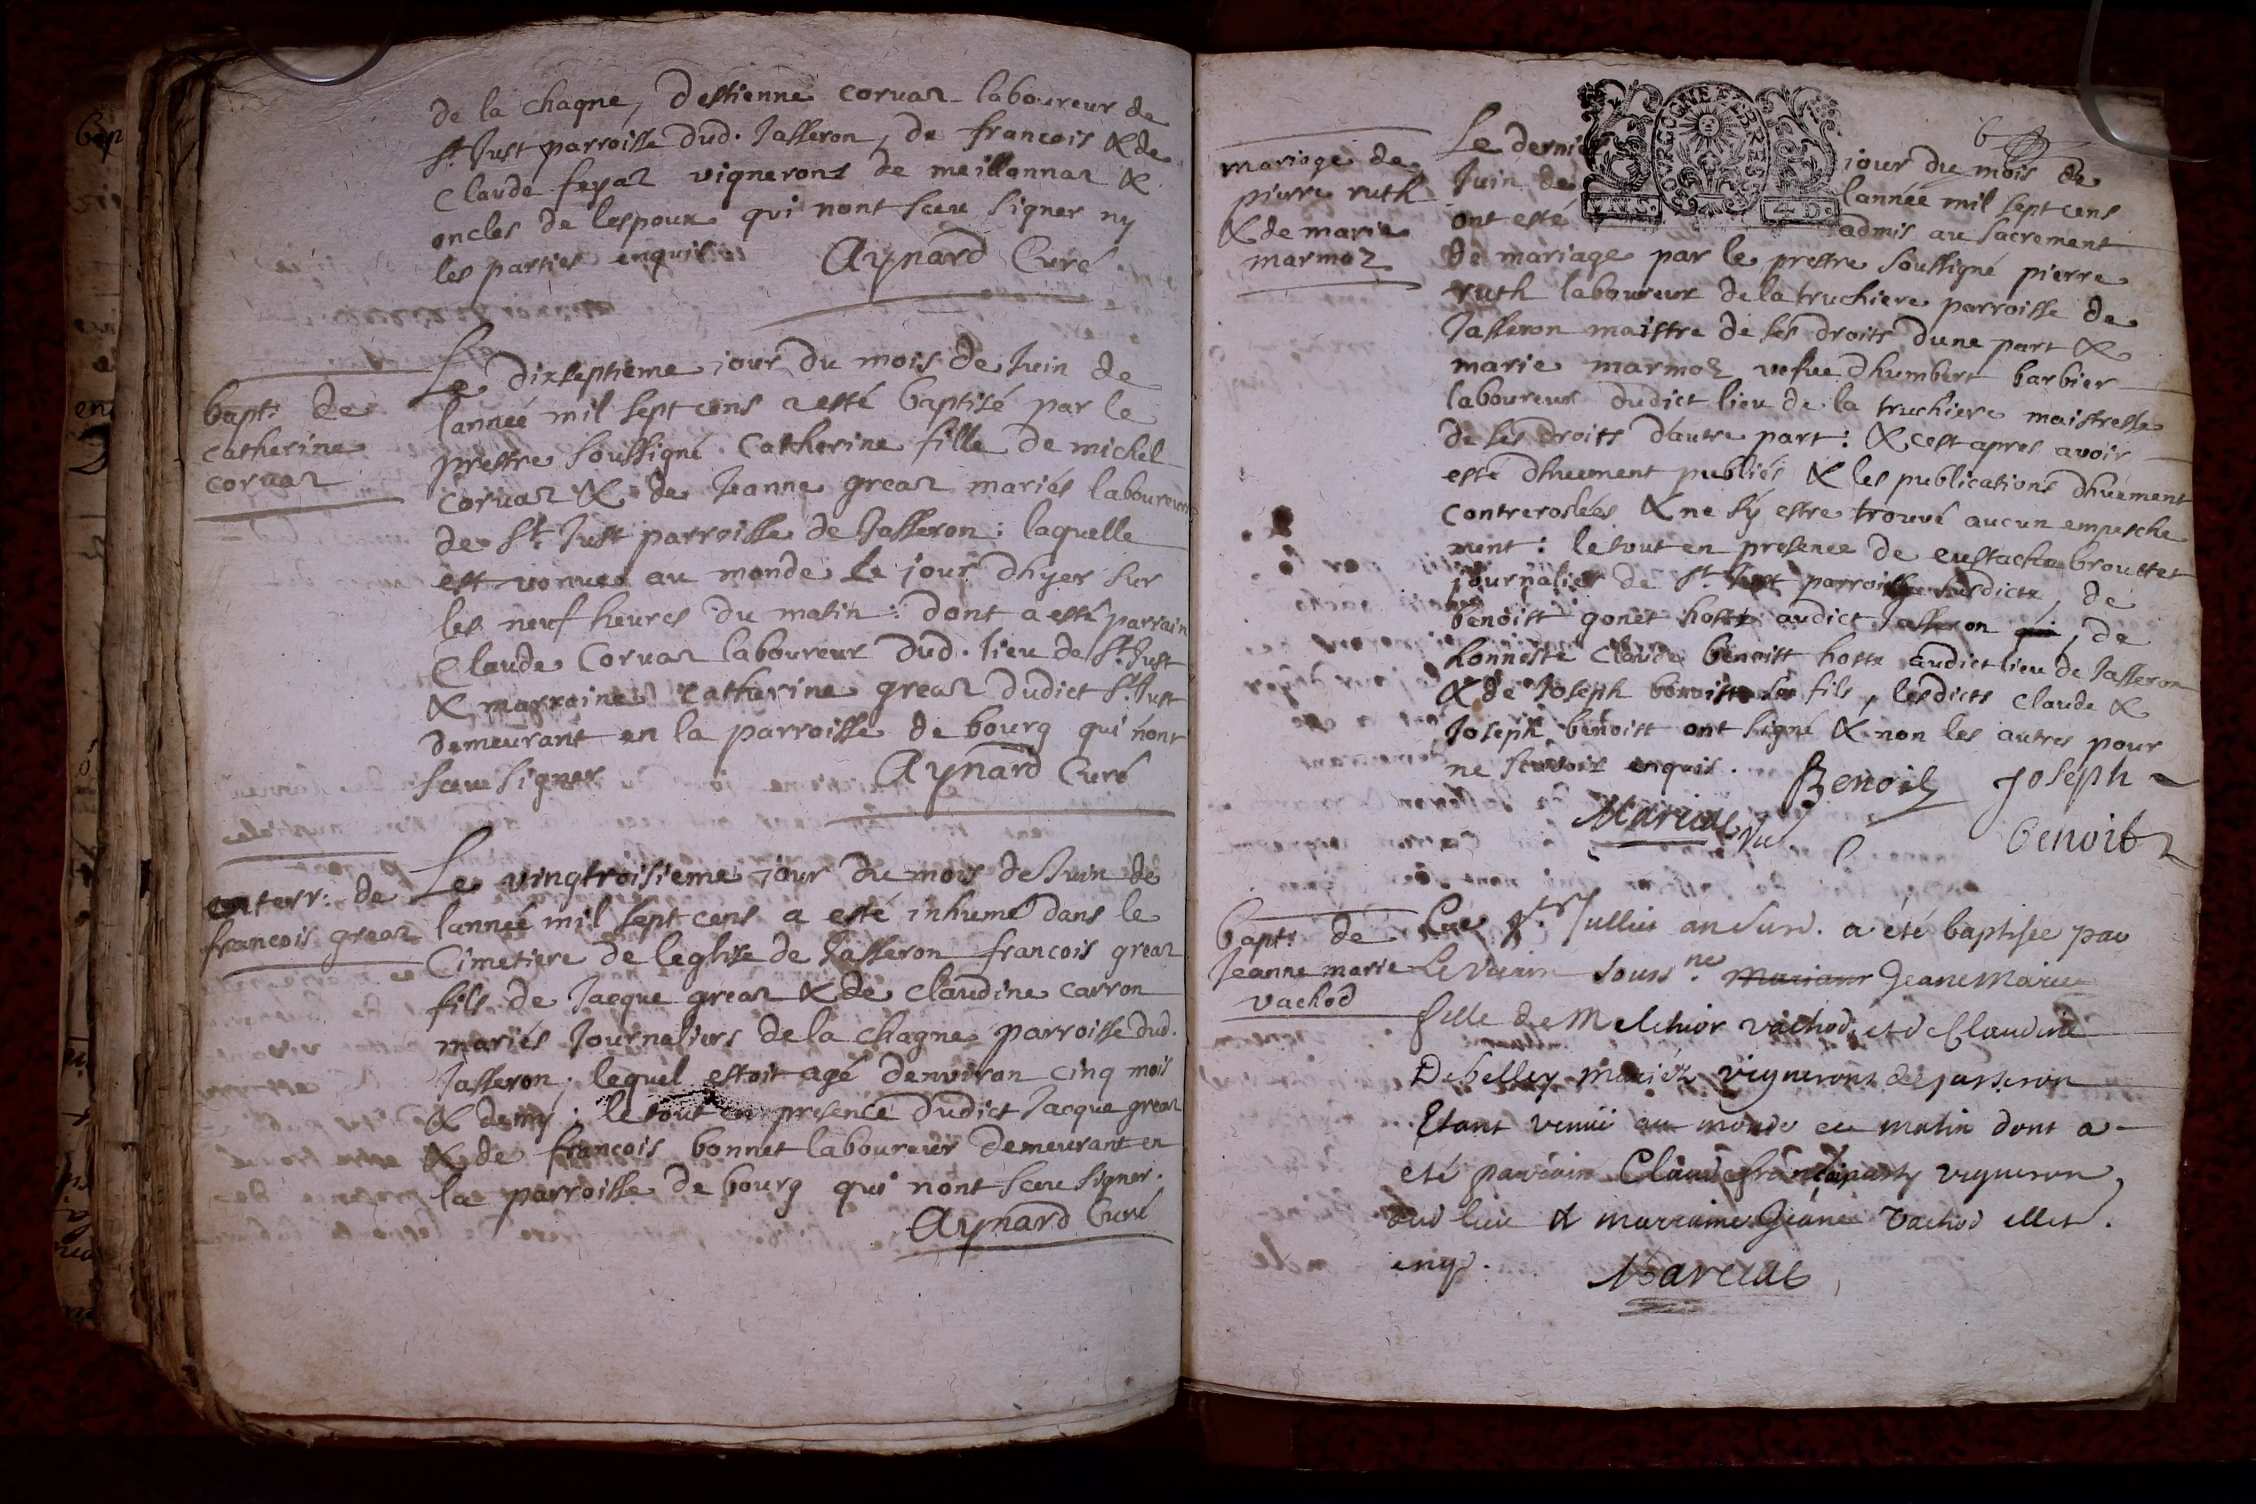 de la chagne, destienne coruaz laboureur de
St Just parroisse dud. Jasseron, de francois & de
Claude feyaz vignerons de meillonnaz &
oncles de lespoux qui nont sceu signer ny
les parties enquis
Aynard Curé
bapt: de
catherine
coruaz
Le dixseptieme jour du mois de Juin de
lanneé mil sept cens a esté baptisé par le
prestre soussigné Catherine fille de michel
coruaz & de Jeanne greaz mariés laboureurs
de St Just parroisse de Jasseron: laquelle
est venue au monde le jour dhyer sur
les neuf heures du matin: dont a esté parrain
Claude Coruaz laboureur dud. lieu de St Just
& marraine catherine greaz dudict St Just
demeurant en la parroisse de bourg qui nont
sceu signer
Aynard Curé
enterr: de
francois greaz
Le vingtroisieme jour du mois de Juin de
lanneé mil sept cens a esté inhumé dans le
Cimetiere de leglise de Jasseron francois greaz
fils de Jacque greaz & de claudine carron
mariés Journaliers de la chagne parroisse dud.
Jasseron, lequel estoit agé denviron cinq mois
& demy: le tout en presence dudict Jacque greaz
& de francois bonnet laboureur demeurant en
la parroisse de bourg qui nont sceu signer.
Aynard Curé
BOURGOGNE ET BRESSE
4 D.
6
mariage de
pierre ruth
& de marie
marmoz
Le dernier jour du mois de
Juin de lannée mil sept cens
ont esté admis au sacrement
de mariage par le prestre soussigné pierre
ruth laboureur de la truchiere parroisse de
Jasseron maistre de ses droits dune part &
marie marmoz vefue dhumbert barbier
laboureur dudict lieu de la truchiere maistresse
de ses droits dautre part: & cest apres avoir
esté dhuement publiés & les publications dhuement
controroslées & ne sy estre trouvé aucun empesche
ment: le tout en presence de eustache brouttet
journalier de St Just parroisse susdicte, de
benoistt gonet hoste audict Jasseron qui, de
honneste Claude benoistt hoste audict lieu de Jasseron
& de Joseph benoistt son fils, lesdicts claude &
Joseph benoistt ont signé & non les autres pour
ne scavoir enquis.
Benoit Joseph
benoit
Bapt: de
Jeanne marie
vachod
Jullié an susd. a été baptisée par
Le vicaire souss.né mariane Jeane Marie
fille de Melchior vachod et d Claudine
Debelley mariéz vignerons de jasseron
Etant venüe au monde ce matin dont a
eté parrain Claude vigneron
dud lieu & marraine Jeane vachod
enq.